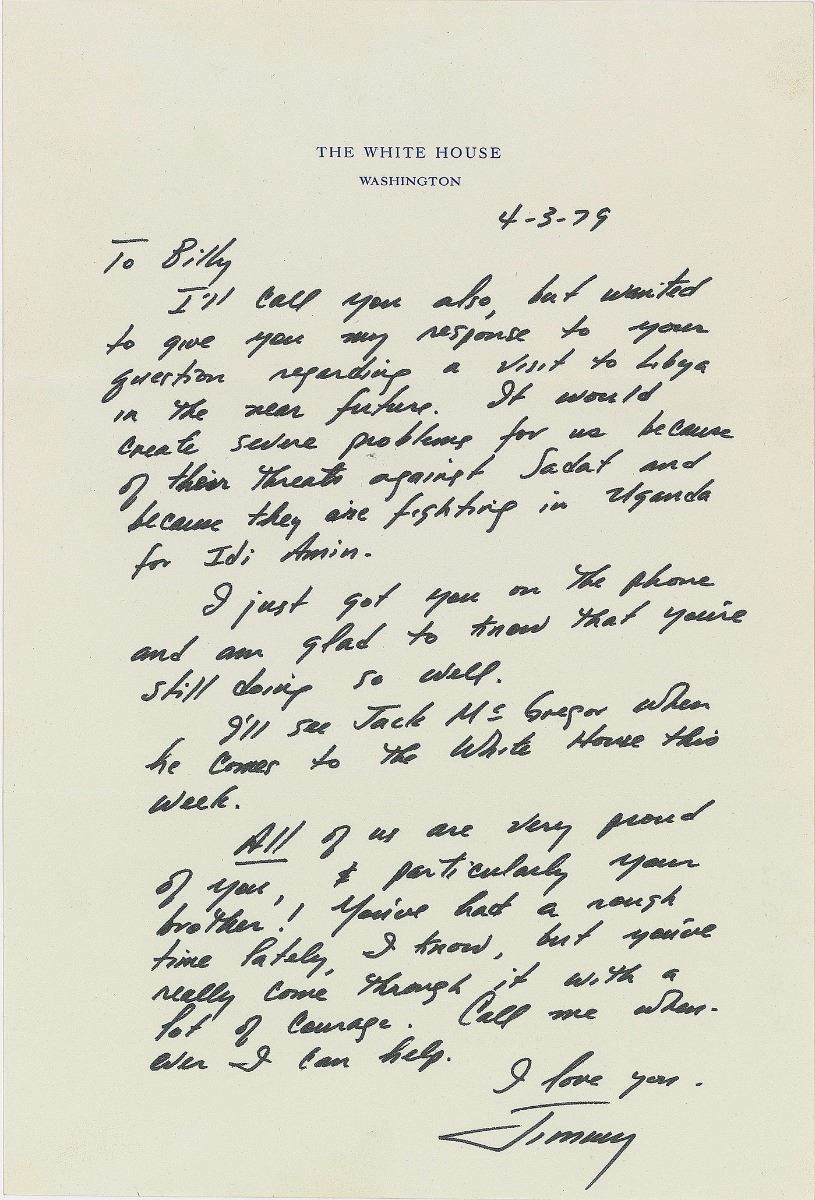 THE WHITE HOUSE
WASHINGTON
4-3-79
To Billy
I'll call you also, but wanted
to give you my response to your
question regarding a visit to Libya
in the near future. It would
create severe problems for us because
of their threats against Sadat and
because they are fighting in Uganda
for Idi Amin.
I just got you on the phone
and am glad to know that you're
still doing so well.
I'll see Jack McGregor when
he comes to the White House this
week.
All of us are very proud
of you, & particularly your
brother! You've had a rough
time lately, I know, but you've
really come through it with a
lot of courage. Call me when-
ever I can help.
I love you.
Jimmy